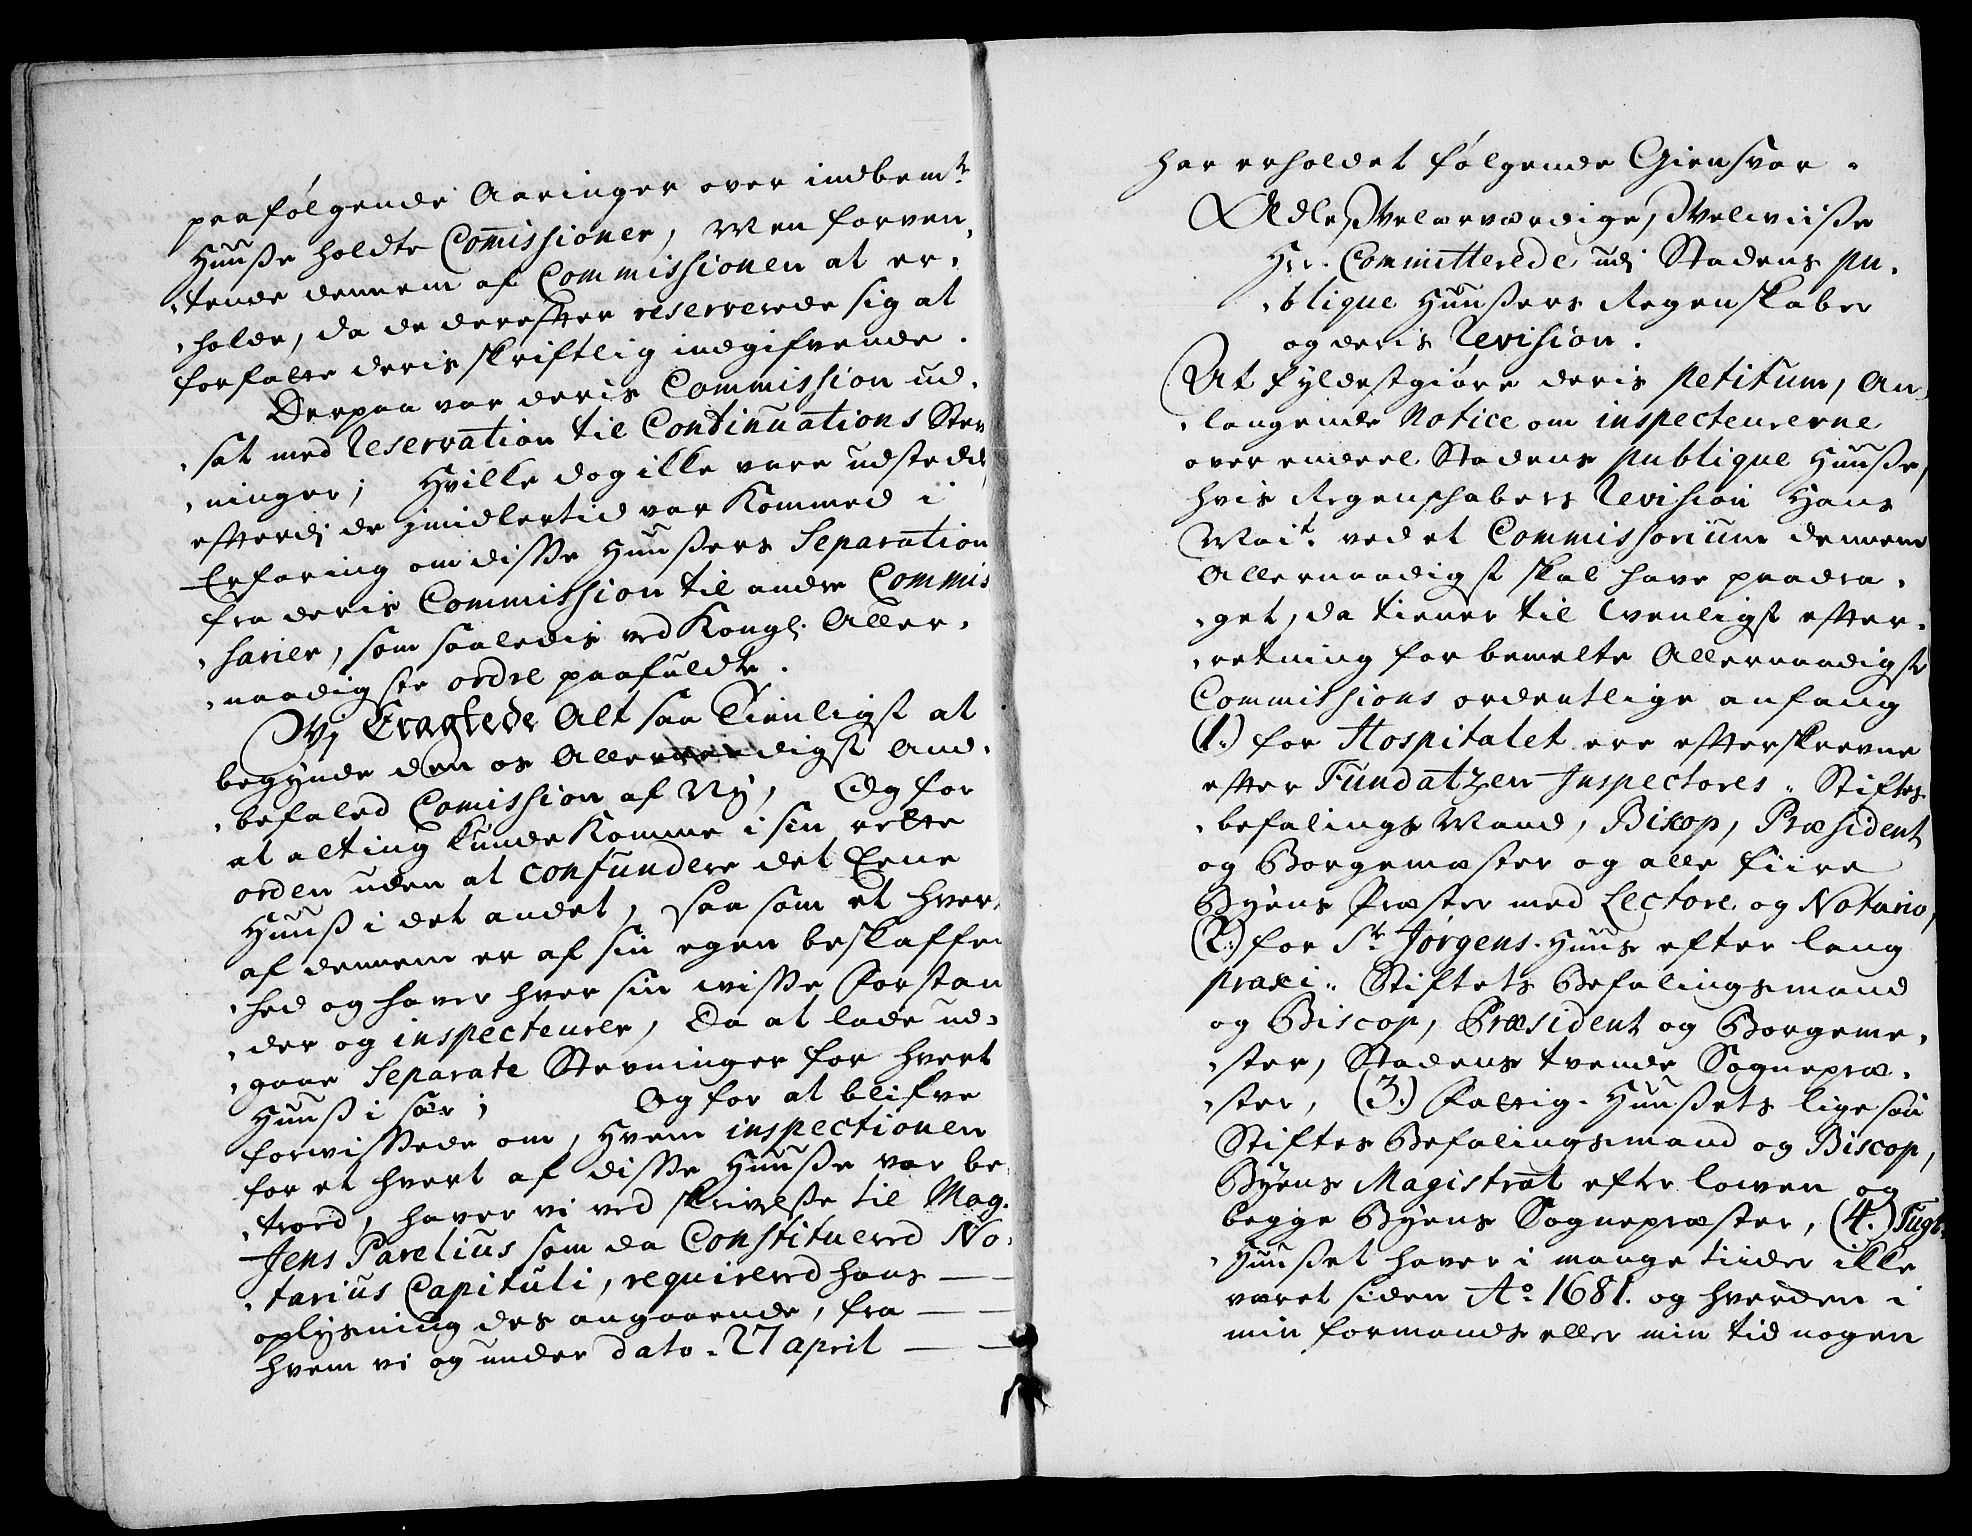 paafølgende Aaringer over indbemte
Huuse holdte Comissioner, Men forven„
„tende dennem af Commissionen at er„
„holde, da de derefter reserverede sig at
forfatte deris skriftlig indgifvende.
Derpaa var deris Commission ud„
„sat med Reservation til Continuations Stev„
„ninger; Hvilke dog ikke vare udstedd
efterdj de jmidlertid var Kommed i
Erfaring om disse Huusers Separation
fra deris Commission til andre Commis
„sarier, som saaledis ved Kongl: Aller„
„naadigste ordre paafuldte.
Wj Eragtede Alt saa Tienligst at
begynde den os Allernaadigst And„
„befaled Comission af Ny, Og for
at alting kunde Komme i sin rette
orden uden at confundere det Eene
Huus i det andet, saa som et hver„
af dennem er af sin egen beskaffen
„hed og haver hver sin wisse Forstan
„der og inspecteurer, Da at lade ud„
„gaae Separate Stevninger for hvert
Huus i sær; Og for at blifve
forwissede om, Hvem inspectionen
for et hvert af disse Huuse var be„
„troed, haver vi ved skrivelse til Mag.
Jens Parelius som da Constituered No„
„tarius Capituli, requirered hans
oplysning des angaaende, fra
hvem vi og under dato. 27 april
har erholdet følgende Giensvar.
Ædle, Velærværdige, Velwiise
Hrr. Committerede udj Stadens pu„
„blique Huusers Regenskaber
og deris Revision.
At fyldestgiøre deris petitum, An„
„langende Notice om inspecteurerne
over eendeel Stadens publique Huuse,
hvis Regenschabers Revision Hans
Mait. ved et Commissorium dennem
Allernaadigst skal have paadra„
„get, da tiener til Wenligst efter„
„retning for bemelte Allernaadigste
Commissions ordentlige anfang
(1.) for Hospitalet ere efterskrevne
efter Fundatzen Inspectores„ Stiftes
„befalings Mand, Biscop, Præsident
og Borgemæster og alle fiire
Byens Præster med Lectore og Notario,
(2.) for St. Jørgens. Huus efter lang
praxi„ Stiftets Befalingsmand
og Biscop, Præsident og Borgeme„
„ster, Stadens tvende Sognepræ„
„ster, (3.) Fattig. Huusets ligesaa
Stiftes Befalingsmand og Biscop,
Byens Magistrat efter lowen og
begge Byens Sognepræster, (4.) Tugt„
„Huuset haver i mange tiider ikke
været siden Ao. 1681. og hverken i
min formands eller min tid nogen